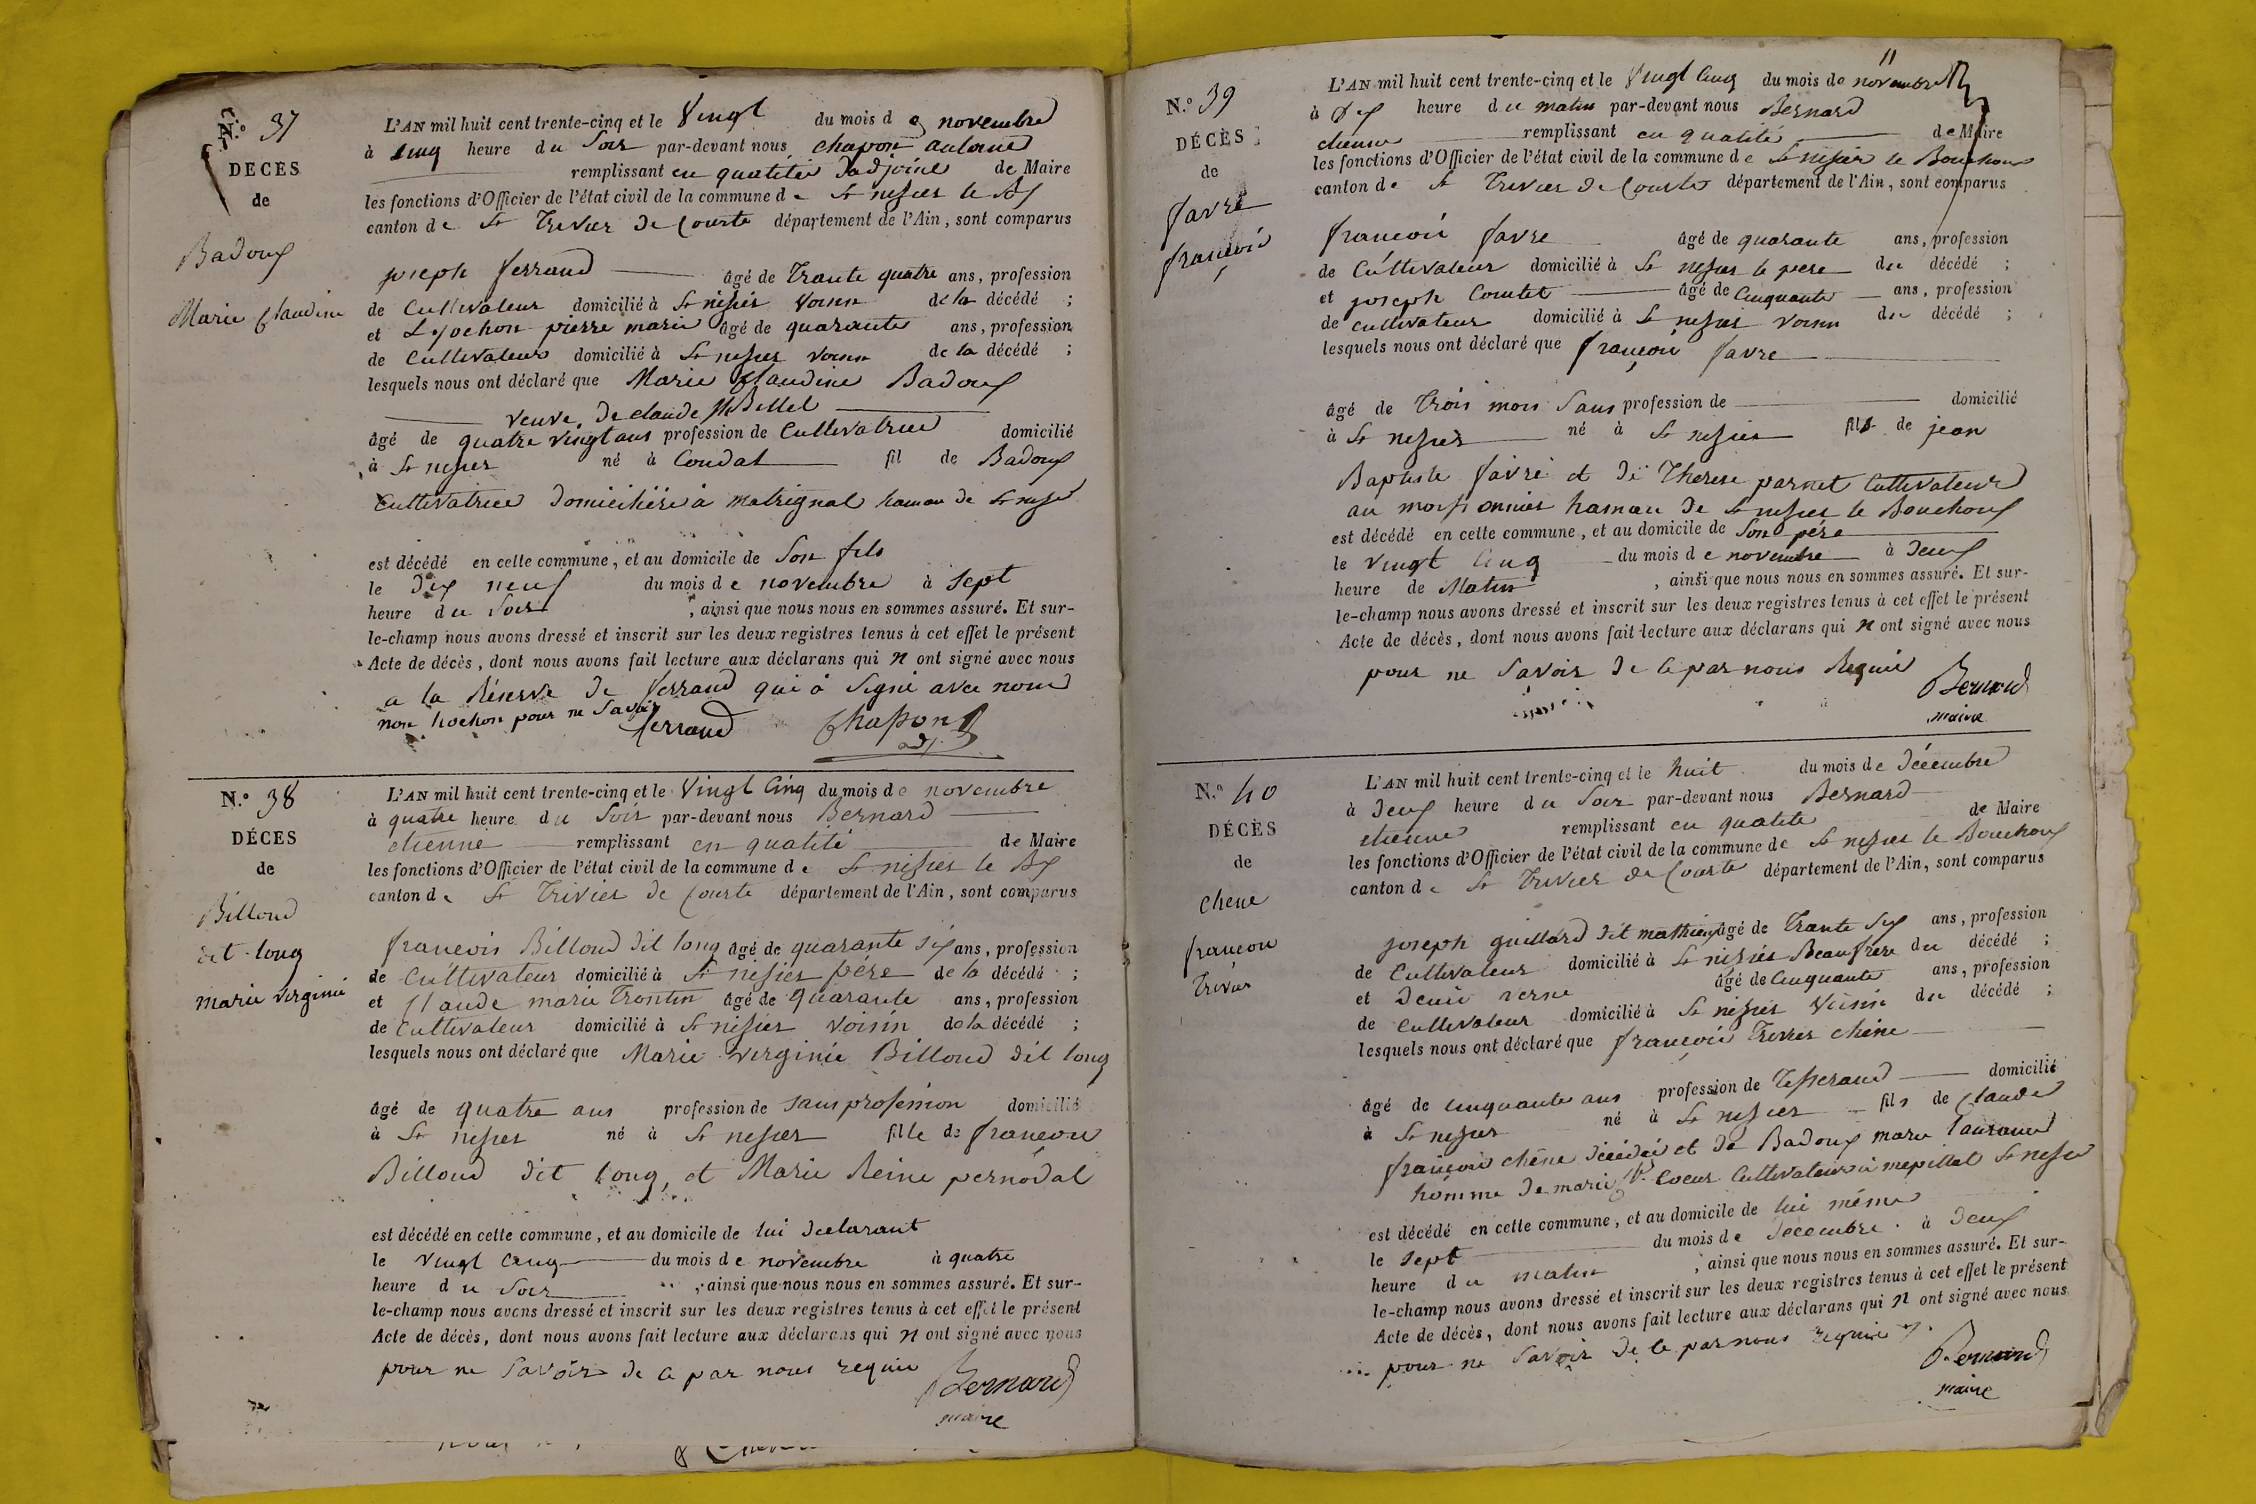 N.º 37
DÉCÈS
de
Badoux
Marie Claudine
L'AN mil huit cent trente-cinq et le Vingt du mois de novembre
à cinq heure du Soir par-devant nous chapon antoine
remplissant en qualitée D'adjoint de Maire
les fonctions d'Officier de l'état civil de la commune de St nisier le Bx
canton de St Trivier De Courte département de l'Ain, sont comparus
joseph ferrand âgé de Trante quatre ans, profession
de Cultivateur domicilié à St nisier Voisin de la décédé ;
et hochon pierre marie âgé de quarante ans, profession
de Cultivateur domicilié à St nisier voisin de la décédé ;
lesquels nous ont déclaré que Marie Claudine Badoux
veuve De claude Billet
âgé de quatre vingt ans profession de Cultivatrice domicilié
à St nisier né à Condal fil de Badoux
Cultivatrice Domicilière à matrignat hamau de St nisier
est décédé en cette commune, et au domicile de Son fils
le Dix neuf du mois de novembre à Sept
heure du Soir , ainsi que nous nous en sommes assuré. Et sur-
le-champ nous avons dressé et inscrit sur les deux registres tenus à cet effet le présent
Acte de décès, dont nous avons fait lecture aux déclarans qui n ont signé avec nous
a la Réserve De ferrand qui a Signé avec nous
non hochon pour ne Savoir
ferrand Chapon
adj.
N.º 38
DÉCES
de
Billoud
dit long
marie virginie
L'AN mil huit cent trente-cinq et le Vingt Cinq du mois de novembre
à quatre heure du Soir par-devant nous Bernard
etienne remplissant en qualité de Maire
les fonctions d'Officier de l'état civil de la commune de St nisier le Bx
canton de St Trivier de Courte département de l'Ain, sont comparus
francois Billoud Dit long âgé de quarante Six ans, profession
de Cultivateur domicilié à St nisier père de la décédé ;
et Claude marie Trontin âgé de quarante ans, profession
de Cultivateur domicilié à St nisier voisin de la décédé ;
lesquels nous ont déclaré que Marie virginie Billoud Dit long
âgé de quatre ans profession de sans profession domicilié
à St nisier né à St nisier fille de francois
Billoud Dit long, et Marie Reine pernodat
est décédé en cette commune, et au domicile de lui Declarant
le vingt Cinq du mois de novembre à quatre
heure du Soir , ainsi que nous nous en sommes assuré. Et sur-
le-champ nous avons dressé et inscrit sur les deux registres tenus à cet effet le présent
Acte de décès, dont nous avons fait lecture aux déclarans qui n ont signé avec nous
pour ne Savoir De ce par nous requis
Bernard
maire
N.º 39
DÉCÈS
de
favre
francois
L'AN mil huit cent trente-cinq et le Vingt Cinq du mois de novembre
à Dix heure du matin par-devant nous Bernard
etienne remplissant en qualité de Maire
les fonctions d'Officier de l'état civil de la commune de St nisier le Bouchoux
canton de St Trivier De Courte département de l'Ain, sont comparus
francois favre âgé de quarante ans, profession
de Cultivateur domicilié à St nisier le pere du décédé ;
et joseph Comtet âgé de Cinquante ans, profession
de cultivateur domicilié à St nisier voisin du décédé ;
lesquels nous ont déclaré que françois favre
âgé de Trois mois Sans profession de domicilié
à St nisier né à St nisier fils de jean
Baptiste favre et De Therese parnet Cultivateur
au hamau De St nisier le Bouchoux
est décédé en cette commune, et au domicile de Son père
le vingt Cinq du mois de novembre à Deux
heure de Matin , ainsi que nous nous en sommes assuré. Et sur-
le-champ nous avons dressé et inscrit sur les deux registres tenus à cet effet le présent
Acte de décès, dont nous avons fait lecture aux déclarans qui n ont signé avec nous
pour ne Savoir De ce par nous Requis
Bernard
maire
N.º 40
DÉCÈS
de
Chene
francois
Trivier
L'AN mil huit cent trente-cinq et le huit du mois de Décembre
à Deux heure du Soir par-devant nous Bernard
etienne remplissant en qualité de Maire
les fonctions d'Officier de l'état civil de la commune de St nisier le Bouchoux
canton de St Trivier De Courte département de l'Ain, sont comparus
joseph guillard Dit mathieu âgé de Trante Six ans, profession
de Cultivateur domicilié à St nisier Beaufrere du décédé ;
et Denis verne âgé de Cinquante ans, profession
de Cultivateur domicilié à St nisier Voisin du décédé ;
lesquels nous ont déclaré que françois Trivier chêne
âgé de cinquante ans profession de Tisserand domicilié
à St nisier né à St nisier fils de Claude
françois chêne Décédé et De Badoux marie
homme De marie Coeur Cultivateur à mepillat St nisier
est décédé en cette commune, et au domicile de lui même
le Sept du mois de Decembre à Deux
heure du matin , ainsi que nous nous en sommes assuré. Et sur-
le-champ nous avons dressé et inscrit sur les deux registres tenus à cet effet le présent
Acte de décès, dont nous avons fait lecture aux déclarans qui n ont signé avec nous
pour ne Savoir De ce par nous requis
Bernard
maire